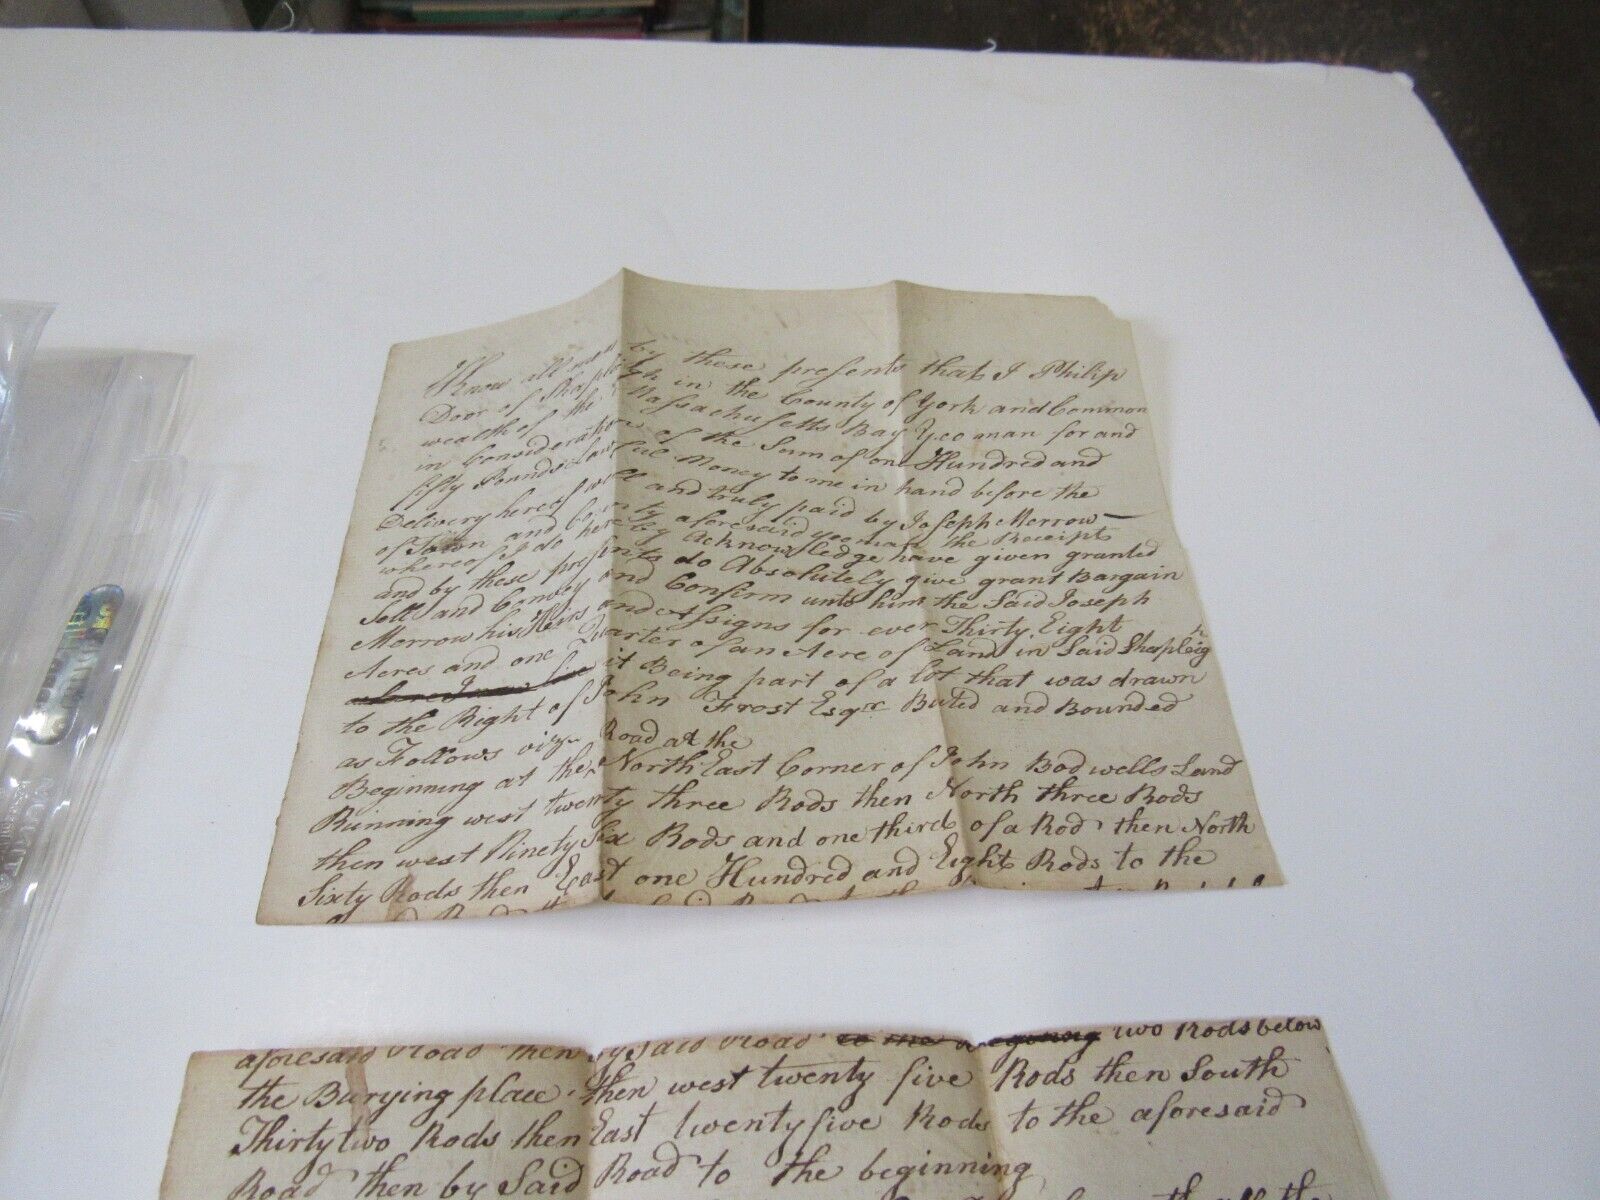 Know all men by these presents that I Philip
Door of Shapleigh in the County of York and Common
wealth of the Massachusetts Bay Yeoman for and
in Consideration of the Sum of one Hundred and
fifty Pounds Lawful Money to me in hand before the
Delivery hereof well and truly paid by Joseph Merrow
of Town and County aforesaid yeoman the Receipt
whereof I do hereby acknowledge have given granted
and by these presents do Absolutely give grant Bargain
Sell and Convey and Confirm unto him the Said Joseph
Merrow his Heirs and Assigns for ever Thirty Eight
Acres and one Quarter of an Acre of Land in Said Shapleigh
it Being part of a lot that was drawn
to the Right of John Frost Esqr Buted and Bounded
as Follows viz
Road at the
Beginning at the North East Corner of John Bodwells Land
Running west twenty three Rods then North three Rods
then west Ninety Six Rods and one third of a Rod then North
Sixty Rods then East one Hundred and Eight Rods to the
aforesaid Road then by Said Road two Rods below
the Burying place then west twenty five Rods then South
Thirty two Rods then East twenty five Rods to the aforesaid
Road then by Said Road to the beginning